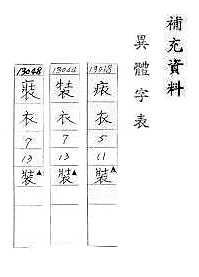 補充資料
異體字表
13048
衣
5
11
裝▲
13048
衣
7
13
裝▲
13048
衣
7
13
裝▲